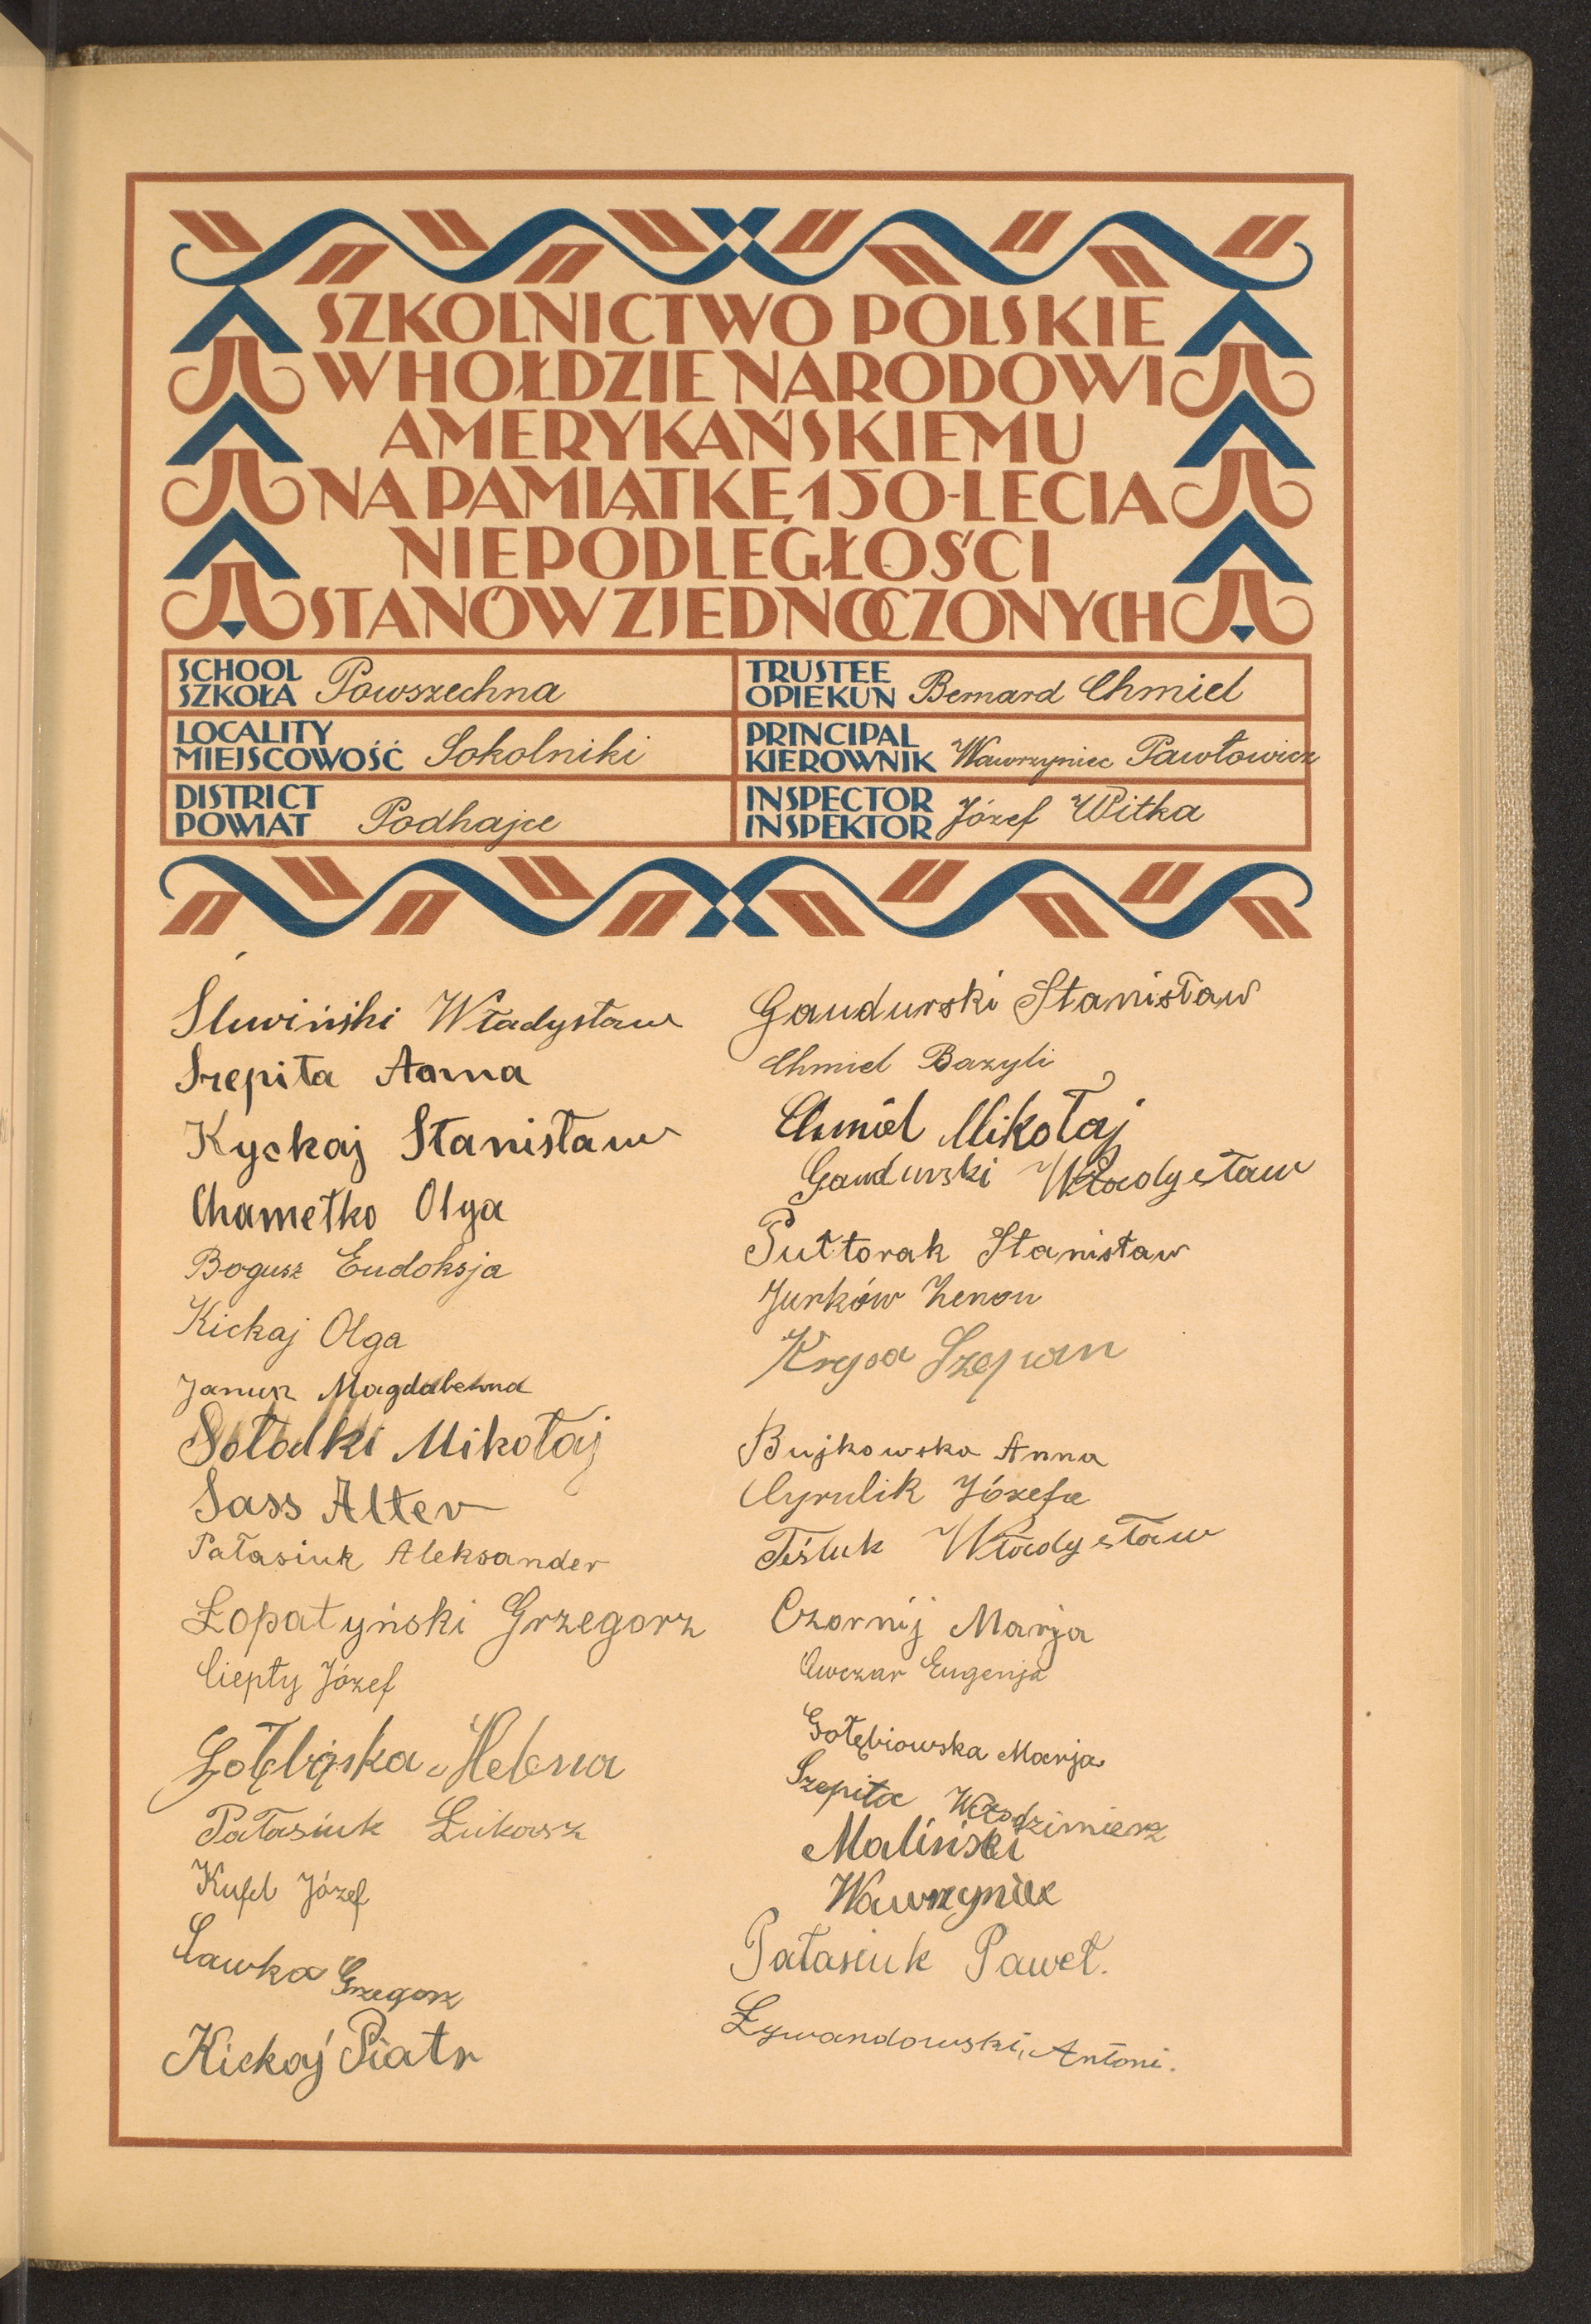 SZKOLNICTWO POLSKIE
W HOŁDZIE NARODOWI
AMERYKAŃSKIEMU
NA PAMIĄTKĘ 150-LECIA
NIEPODLEGŁOŚCI
STANÓW ZJEDNOCZONYCH
SCHOOL
SZKOŁA Powszechna
LOCALITY
MIEJSCOWOŚĆ Sokolniki
DISTRICT
POWIAT Podhajce
TRUSTEE
OPIEKUN Bernard Chmiel
PRINCIPAL
KIEROWNIK Wawrzyniec Pawłowicz
INSPECTOR
INSPEKTOR Józef Witka
Śliwiński Władysław
Szepita Anna
Kyckaj Stanisław
Chamełko Olga
Bogusz Eudoksja
Kickaj Olga
Janusz Magdalena
Sołodki Mikołaj
Sass Alter
Pałasiuk Aleksander
Łopatyński Grzegorz
Ciepły Józef
Helena
Pałasiuk Łukasz
Kufel Józef
Ławka Grzegorz
Kickaj Piotr
Gaudurski Stanisław
Chmiel Bazyli
Chmiel Mikołaj
Gaudurski Władysław
Putorak Stanisław
Jurków Zenon
Krysa Szepan
Bujkowska Anna
Cyrulik Józefa
Teśluk Władysław
Czornij Marja
Owczar Eugenja
Gołębiowska Marja
Szepita Włodzimierz
Maliński
Wawrzyniec
Pałasiuk Paweł.
Lywandowski, Antoni.